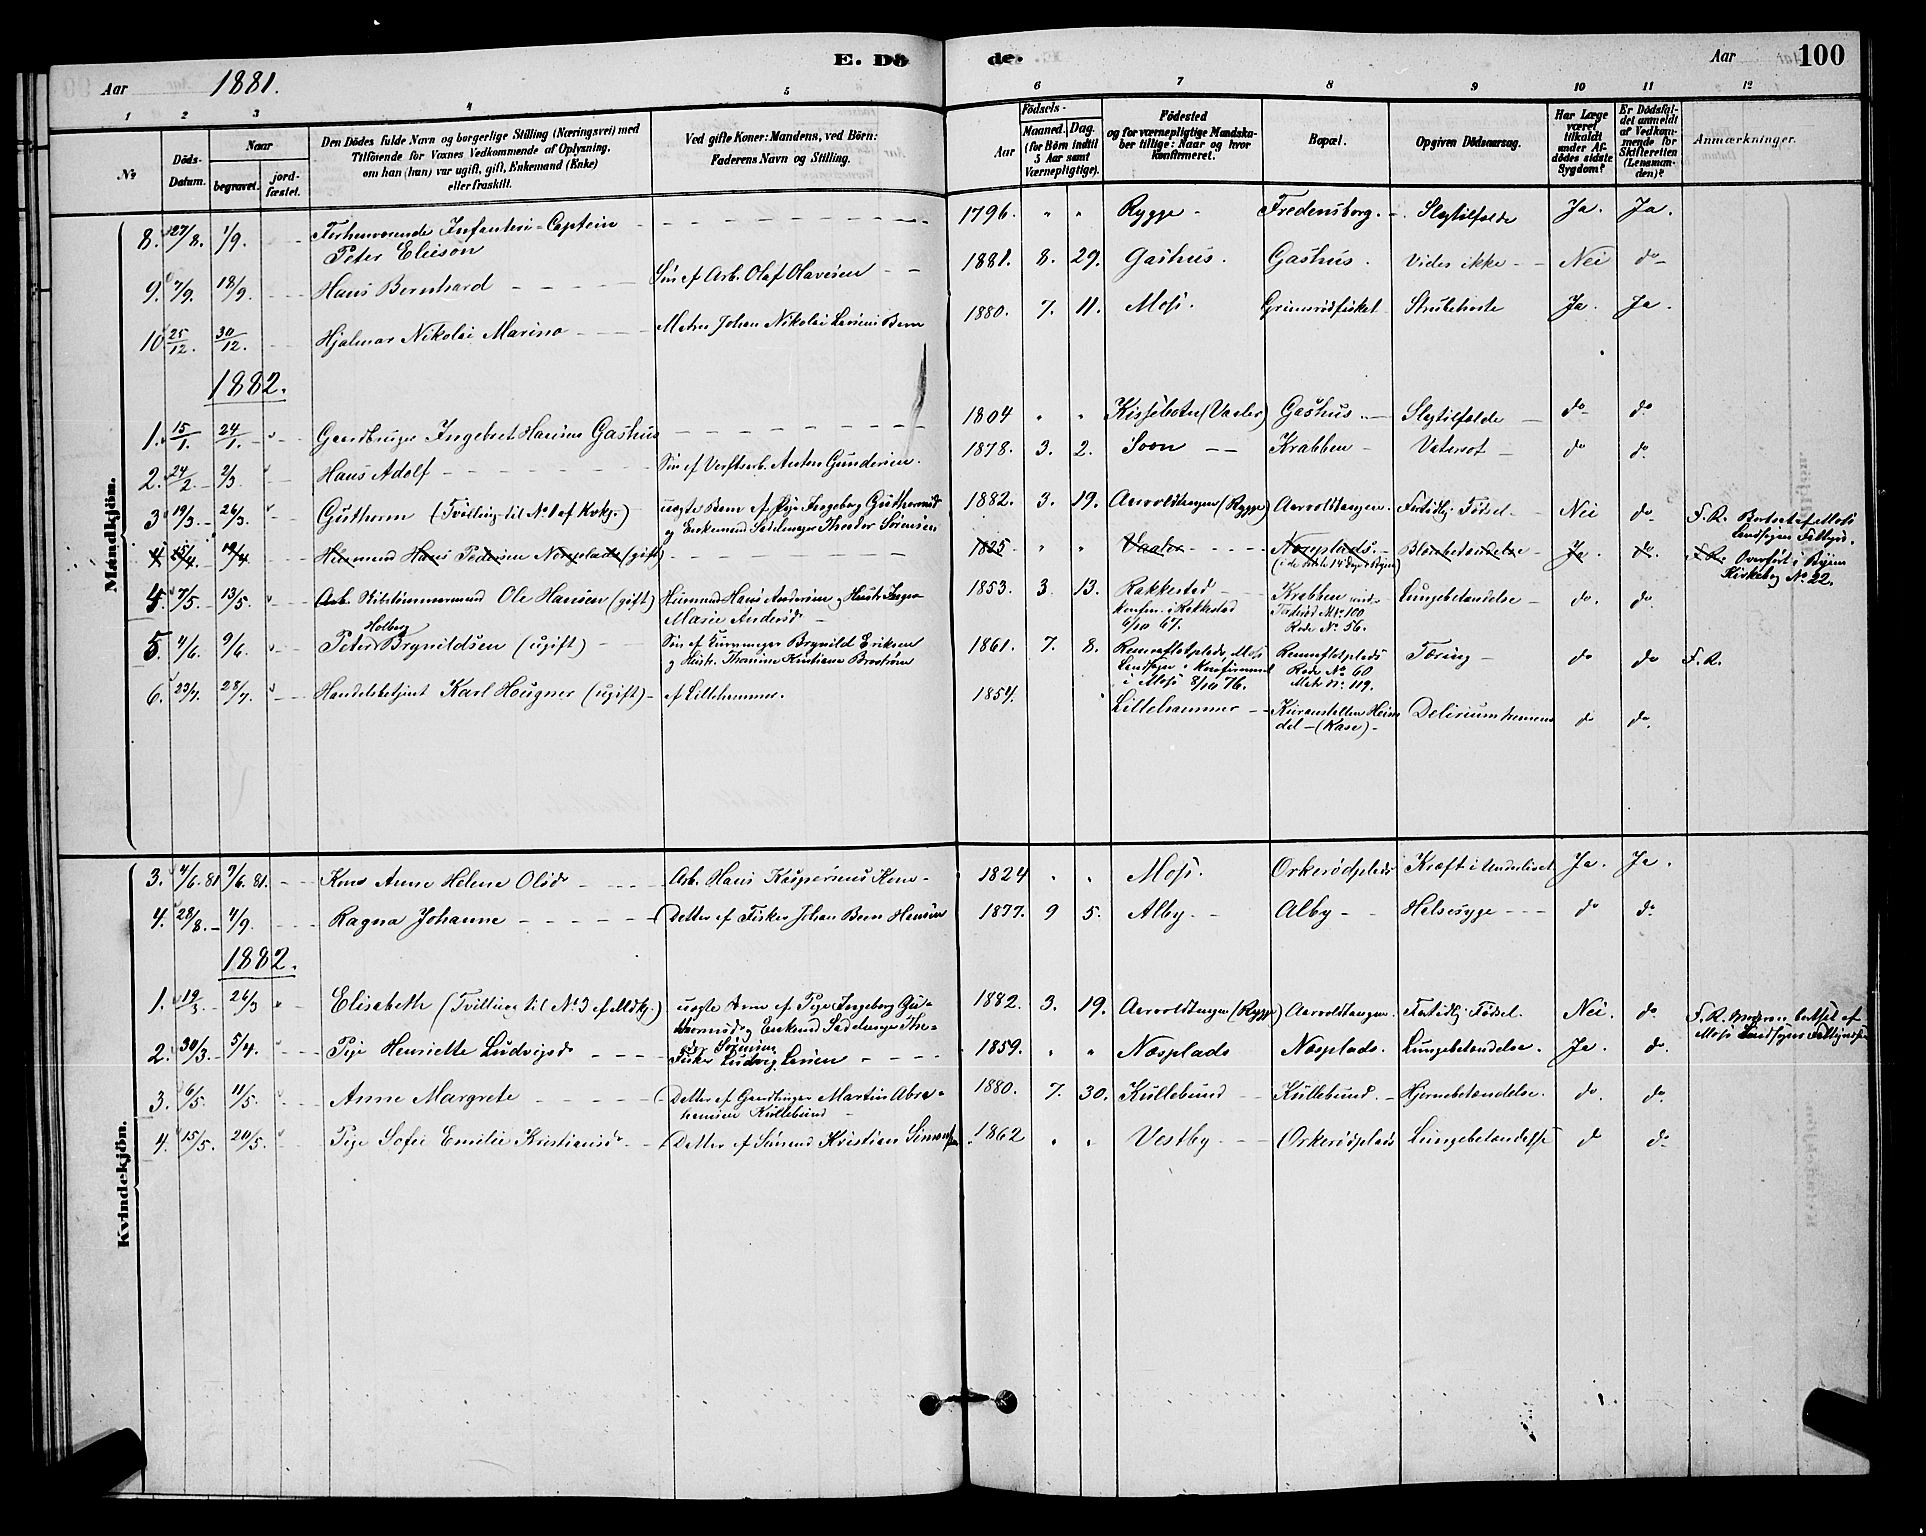 E. Döde.
Aar 1881.
Aar 100
1 2 3 4 5 6 7 8 9 10 11 12
No.
Döds-Datum.
Naar
begravet. jord-fæstet.
Den Dödes fulde Navn og borgerlige Stilling (Næringsvei) med
Tilföiende for Voxnes Vedkommende af Oplysning,
om han (hun) var ugift, gift, Enkemand (Enke)
eller fraskilt.
Ved gifte Koner: Mandens, ved Börn:
Faderens Navn og Stilling.
Födsels-
Aar Maaned. Dag.
(for Börn indtil
5 Aar samt
Værnepligtige).
Födested
og for værnepligtige Mandska-
ber tillige: Naar og hvor
konfirmeret.
Bopæl.
Opgiven Dödsaarsag.
Har Læge
været
tilkaldt
under Af-
dödes sidste
Sygdom?
Er Dödsfal-
det anmeldt
af Vedkom-
mende for
Skifteretten
(Lensman-
den)?
Anmærkninger.
Mandkjön.
8. 27/8. 1/9. Forhenværende Infanteri-Captein 1796. " " Rygge - Fredensborg. - Slagtilfælde Ja. Ja.
Peter Elieson
9. 7/9. 18/9. Hans Bernhard Søn af Arb. Olaf Olavesen 1881. 8. 29. Gashus. Gashus. Vides ikke Nei do
10 25/12. 30/12. Hjalmar Nikolai Marino Johan Nikolai Barn 1880. 7. 11. Moss. Strubehoste Ja. Ja.
1882.
1. 15/1. 24/1. Gaardbruger Ingebret Hansen Gashus 1804 " " (Vaaler) Gashus. Slagtilfælde do do
2. 24/2. 2/3. Hans Adolf Søn af Verftsarb. Anton Gundersen. 1878. 3. 2. Soon Krabben do do
3 19/3. 26/3. Güthorm (Tvilling til No 1 af Kvkj.) uægte Barn af Pige Ingeborg 1882. 3. 19. (Rygge) Fortidlig Fødsel Nei do F. R. Bortsat af Moss
og Enkemand Sadelmager Theodor Sörensen Landsogns Fattigv.
4 15/4. 19/4 Husmand Hans Pedersen Næsplads (gift) 1825 " " Vaaler Næsplads. Ja. do. F. R. Overført i Byens
Kirkebog No 22.
4. 7/5. 13/5. Arb. Skibstømmermand Ole Hansen (gift) Husmand Hans Andersen og Hustr. 1853. 3. 13. Rakkestad Krabben Lungebetændelse do. do.
Marie Andersd. konfm. i Rakkestad Mtr. No. 100
6/10 67. Rode No. 56.
Holberg
5. 4/6. 9/6. Peter Brynildsen (ugift) Søn af Brynild Eriksen 1861. 7. 8. Moss Tæring do do F. R.
og Hustr. Thomine Kristiane Landsogn. Konfirmeret Rode No 60
i Moss 8/10 76. Matr. Nr. 119.
6. 23/7. 28/7. Handelsbetjent Karl Hougner (ugift) af Lillehammer. 1854. Lillehammer Kuranstalten Heim- Delirium tremens do do.
dal - (Kase) -
Kvindekjön.
3. 4/6. 81 9/6. 81. Kone Anne Helene Olsd. Arb. Hans Kaspersens Kone 1824 " " Moss. Orkerødplads Kræft i Underlivet Ja. Ja.
4. 28/8. 4/9. Ragna Johanne Datter af Fisker Johan Bern Hansen 1877. 9 5. Alby. Alby Halssyge do do
1882.
1. 19/3. 26/3 Elisabeth (Tvilling til No 3 af Mdkj.) uægte Barn af Pige Ingeborg Gu- 1882. 3. 19. (Rygge) Fortidlig Fødsel. Nei. do. F. R. Moderen bortsat af
og Enkemd. Sadelmager The- Moss Landsogns
odor Sörensen
2. 30/3. 5/4. Pige Henriette Ludvigsd. Fisker Ludvig Larsen 1859. " " Næsplads Næsplads. Lungebetændelse. Ja. do.
3. 6/5. 11/5. Anne Margrete Datter af Gaardbruger Martin Abra- 1880. 7. 30. Kullebund Kullebund. Hjernebetændelse. do. do.
hamsen Kullebund
4. 15/5. 20/5. Pige Sofie Emilie Kristiansd. Datter af Kristian 1862 " " Vestby Orkerødplads Lungebetændelse do do.